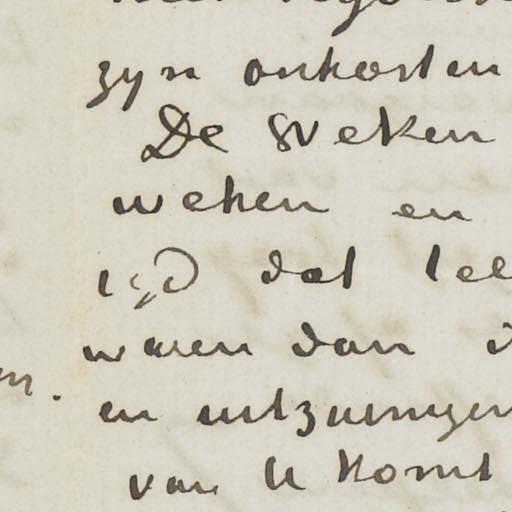 zyn onkosten
De Weken
weken en
tijd dat
waren dan
en uitzuinigen
van U komt